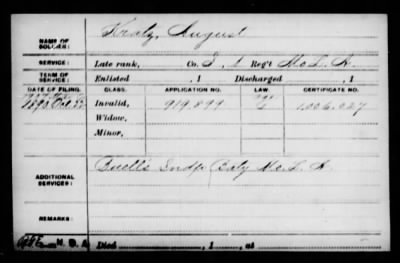 NAME OF SOLDIER: Kratz, August
SERVICE: Late rank, Co. I, 1 Reg't Mo. L. A.
TERM OF SERVICE: Enlisted , 1 Discharged , 1
DATE OF FILING. CLASS. APPLICATION NO. LAW. CERTIFICATE NO.
1890 Oct. 22 Invalid, 919.899 1.006.027
Widow,
Minor,
ADDITIONAL SERVICES: Buell's Indp. Baty Mo. L. A.
REMARKS:
Died , 1 , at